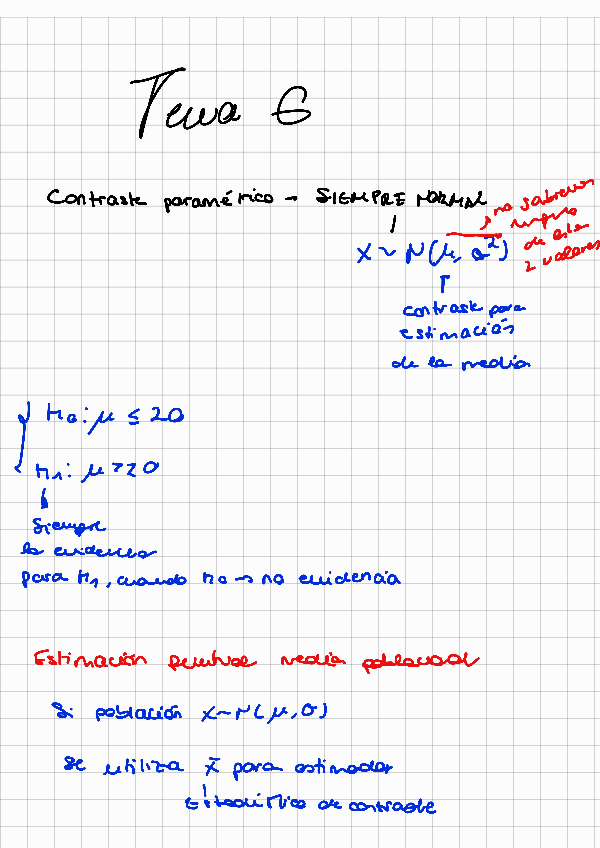 Tema 6
Contraste paramétrico → SIEMPRE NORMAL
no sabremos
ninguno
de estos
2 valores
X ~ N(μ, σ²)
contraste para
estimación
de la media
H₀: μ ≤ 20
H₁: μ > 20
Siempre
la evidencia
para H₁, cuando H₀ → no evidencia
Estimación puntual media poblacional
Si población X ~ N(μ, σ)
Se utiliza x̄ para estimador
Estadístico de contraste